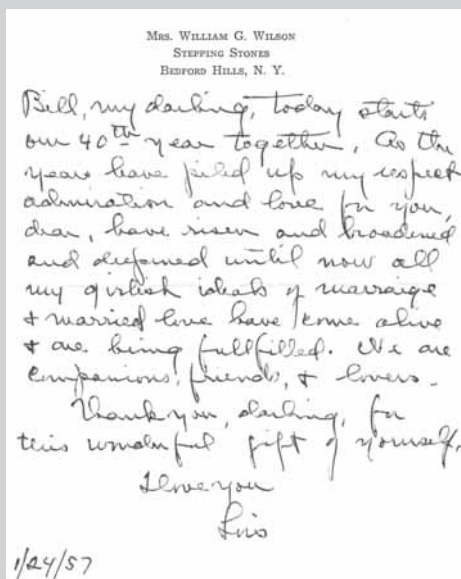 MRS. WILLIAM G. WILSON
STEPPING STONES
BEDFORD HILLS, N. Y.
Bill, my darling, today starts
our 40th year together. As the
years have piled up my respect
admiration and love for you,
dear, have risen and broadened
and deepened until now all
my girlish ideals of marraige
& married love have come alive
& are being fullfilled. We are
companions, friends, & lovers.
Thank you, darling, for
this wonderful gift of yourself.
I love you
Lois
1/24/57